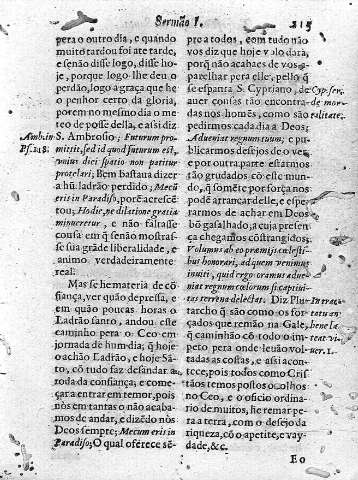 Sermão I. 215
pera o outro dia, e quando
muito tardou foi ate tarde,
e senão disse logo, disse ho-
je, porque logo lhe deu o
perdão, logo a graça que he
o penhor certo da gloria,
porem no mesmo dia o me-
teo de posse della, e assi diz
Amb. in S. Ambrosio: Futurum pro-
Ps. 118. mittit, sed id quod futurum est,
unius diei spatio non patitur
protelari; Bem bastava dizer
a hũ ladrão perdido; Mecũ
eris in Paradiso, porẽ acrescẽ
tou; Hodie, ne dilatione gratia
minueretur, e não faltasse
cousa em q̃ senão mostras-
se sua grãde liberalidade, e
animo verdadeiramente
real.
Mas se he materia de cõ
fiança, ver quão depressa, e
em quão poucas horas o
Ladrão santo, andou este
caminho pera o Ceo em
jornada de hum dia; q̃ hoje
o achão Ladrão, e hoje Sã-
to, cõ tudo faz desandar a
roda da confiança; e come-
çar a entrar em temor, pois
nòs em tantas o não acaba-
mos de andar, e dizẽdo nòs
Deos sempre; Mecum eris in
Paradiso; O qual oferece sẽ-
pro a todos, com tudo não
vos diz que hoje v alo dara,
porq̃ não acabaes de vos a-
parelhar pera elle, pello q̃
se espanta S. Cypriano, de
auer cousas tão encontra-
das nos homẽs, como são
pedirmos cada dia a Deos;
Adueniat regnum tuum, e pu-
blicarmos seu desejo, e ve
por outra parte estarmos
tão grudados cõ este mun-
do, q̃ somẽte por força nos
pode arrancar delle, e espe-
rarmos de achar em Deos
bõ gasalhado, a cuja presen
ça chegamos constrangidos;
Volumus ab eo præmijs cœlesti-
bus honorari, ad quem venimus
inuiti, quid ergo oramus adue-
niat regnum cœlorum si captiui-
tas terrena delectat. Diz Plu-
tarcho q̃ são como os for-
çados que remão na Gale,
q̃ caminhão cõ todo o im-
peto pera onde leuão vol-
tadas as costas, e assi acon-
tece, pois todos como Cris
tãos temos postos os olhos
no Ceo, e o oficio ordina-
rio de muitos, he remar pe-
ra a terra, com o desejo da
riqueza, cõ o apetite, e vay-
dade, &c.
E o